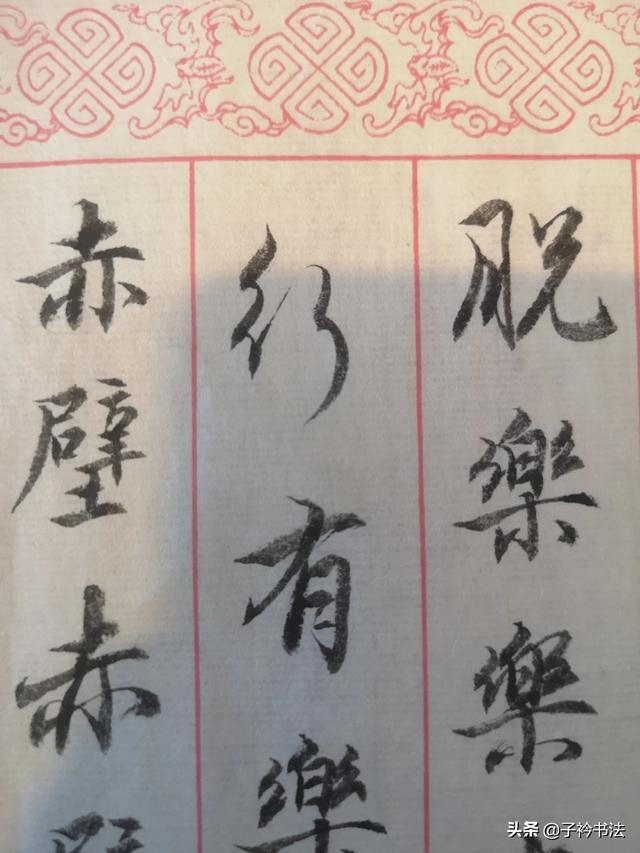 脱樂樂
行有樂
赤壁赤
头条 @子衿书法